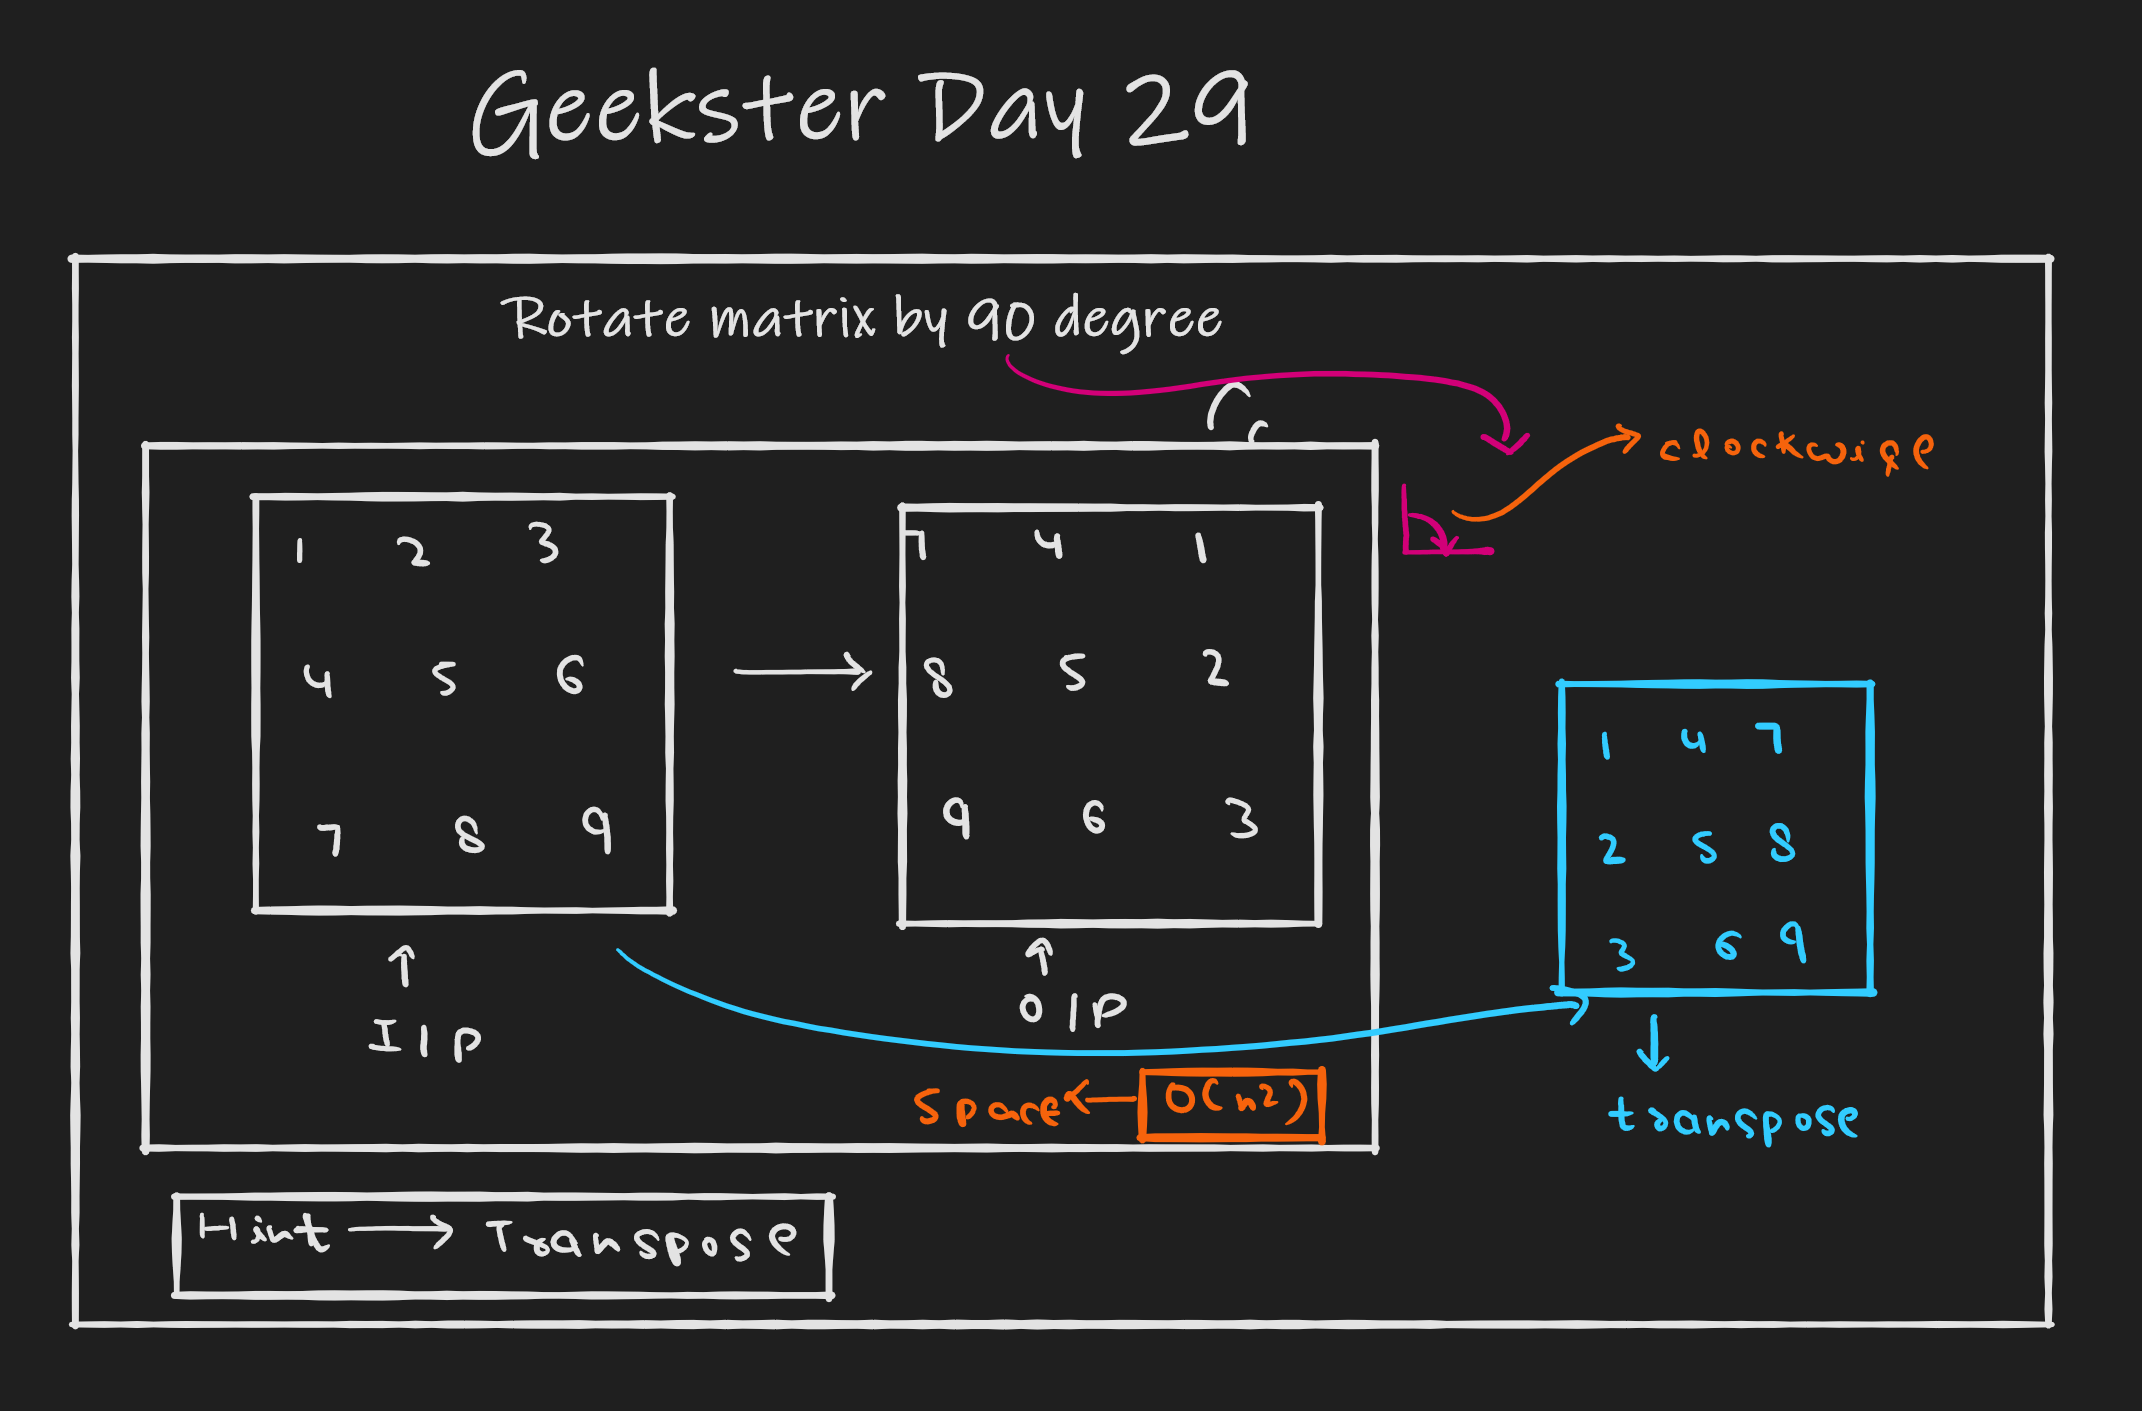 Geekster Day 29
Rotate matrix by 90 degree
clockwise
1 2 3
4 5 6
7 8 9
I/P
7 4 1
8 5 2
9 6 3
O/P
Space ← O(n2)
1 4 7
2 5 8
3 6 9
transpose
Hint → Transpose